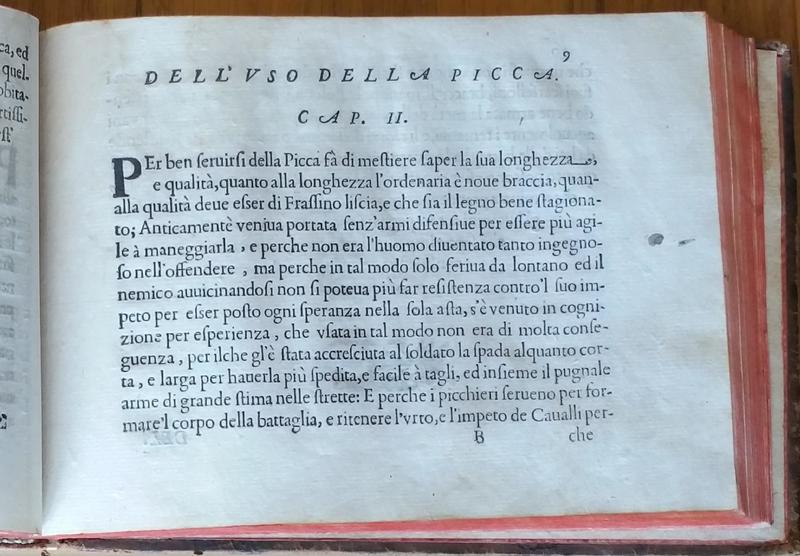 ca, ed
quel-
obita-
rtissi-
est'
9
DELL'VSO DELLA PICCA.
CAP. II.
PEr ben seruirsi della Picca fà di mestiere saper la sua longhezza,
e qualità, quanto alla longhezza l'ordenaria è noue braccia, quan-
alla qualità deue esser di Frassino liscia, e che sia il legno bene stagiona-
to; Anticamentè veniua portata senz'armi difensiue per essere più agi-
le à maneggiarla, e perche non era l'huomo diuentato tanto ingegno-
so nell'offendere, ma perche in tal modo solo feriua da lontano ed il
nemico auuicinandosi non si poteua più far resistenza contro'l suo im-
peto per esser posto ogni speranza nella sola asta, s'è venuto in cogni-
zione per esperienza, che vsata in tal modo non era di molta conse-
guenza, per ilche gl'è stata accresciuta al soldato la spada alquanto cor-
ta, e larga per hauerla più spedita, e facile à tagli, ed insieme il pugnale
arme di grande stima nelle strette: E perche i picchieri serueno per for-
mare'l corpo della battaglia, e ritenere l'vrto, e l'impeto de Caualli per-
B che